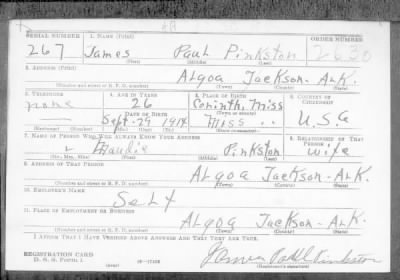 SERIAL NUMBER 1. NAME (Print) ORDER NUMBER
267 James Paul Pinkston 2630
(First) (Middle) (Last)
2. ADDRESS (Print)
Algoa Jackson - Ark.
(Number and street or R. F. D. number) (Town) (County) (State)
3. TELEPHONE 4. AGE IN YEARS 5. PLACE OF BIRTH 6. COUNTRY OF CITIZENSHIP
none 26 Corinth, Miss
DATE OF BIRTH (Town or county)
Sept-29 1914 Miss .. U.S.A
(Exchange) (Number) (Mo.) (Day) (Yr.) (State or country)
7. NAME OF PERSON WHO WILL ALWAYS KNOW YOUR ADDRESS 8. RELATIONSHIP OF THAT PERSON
Maudie Pinkston wife
(Mr., Mrs., Miss) (First) (Middle) (Last)
9. ADDRESS OF THAT PERSON
Algoa Jackson - Ark.
(Number and street or R. F. D. number) (Town) (County) (State)
10. EMPLOYER'S NAME
Self
11. PLACE OF EMPLOYMENT OR BUSINESS
Algoa Jackson - Ark
(Number and street or R. F. D. number) (Town) (County) (State)
I AFFIRM THAT I HAVE VERIFIED ABOVE ANSWERS AND THAT THEY ARE TRUE.
REGISTRATION CARD James Paul Pinkston
D. S. S. Form 1 (Registrant's signature)